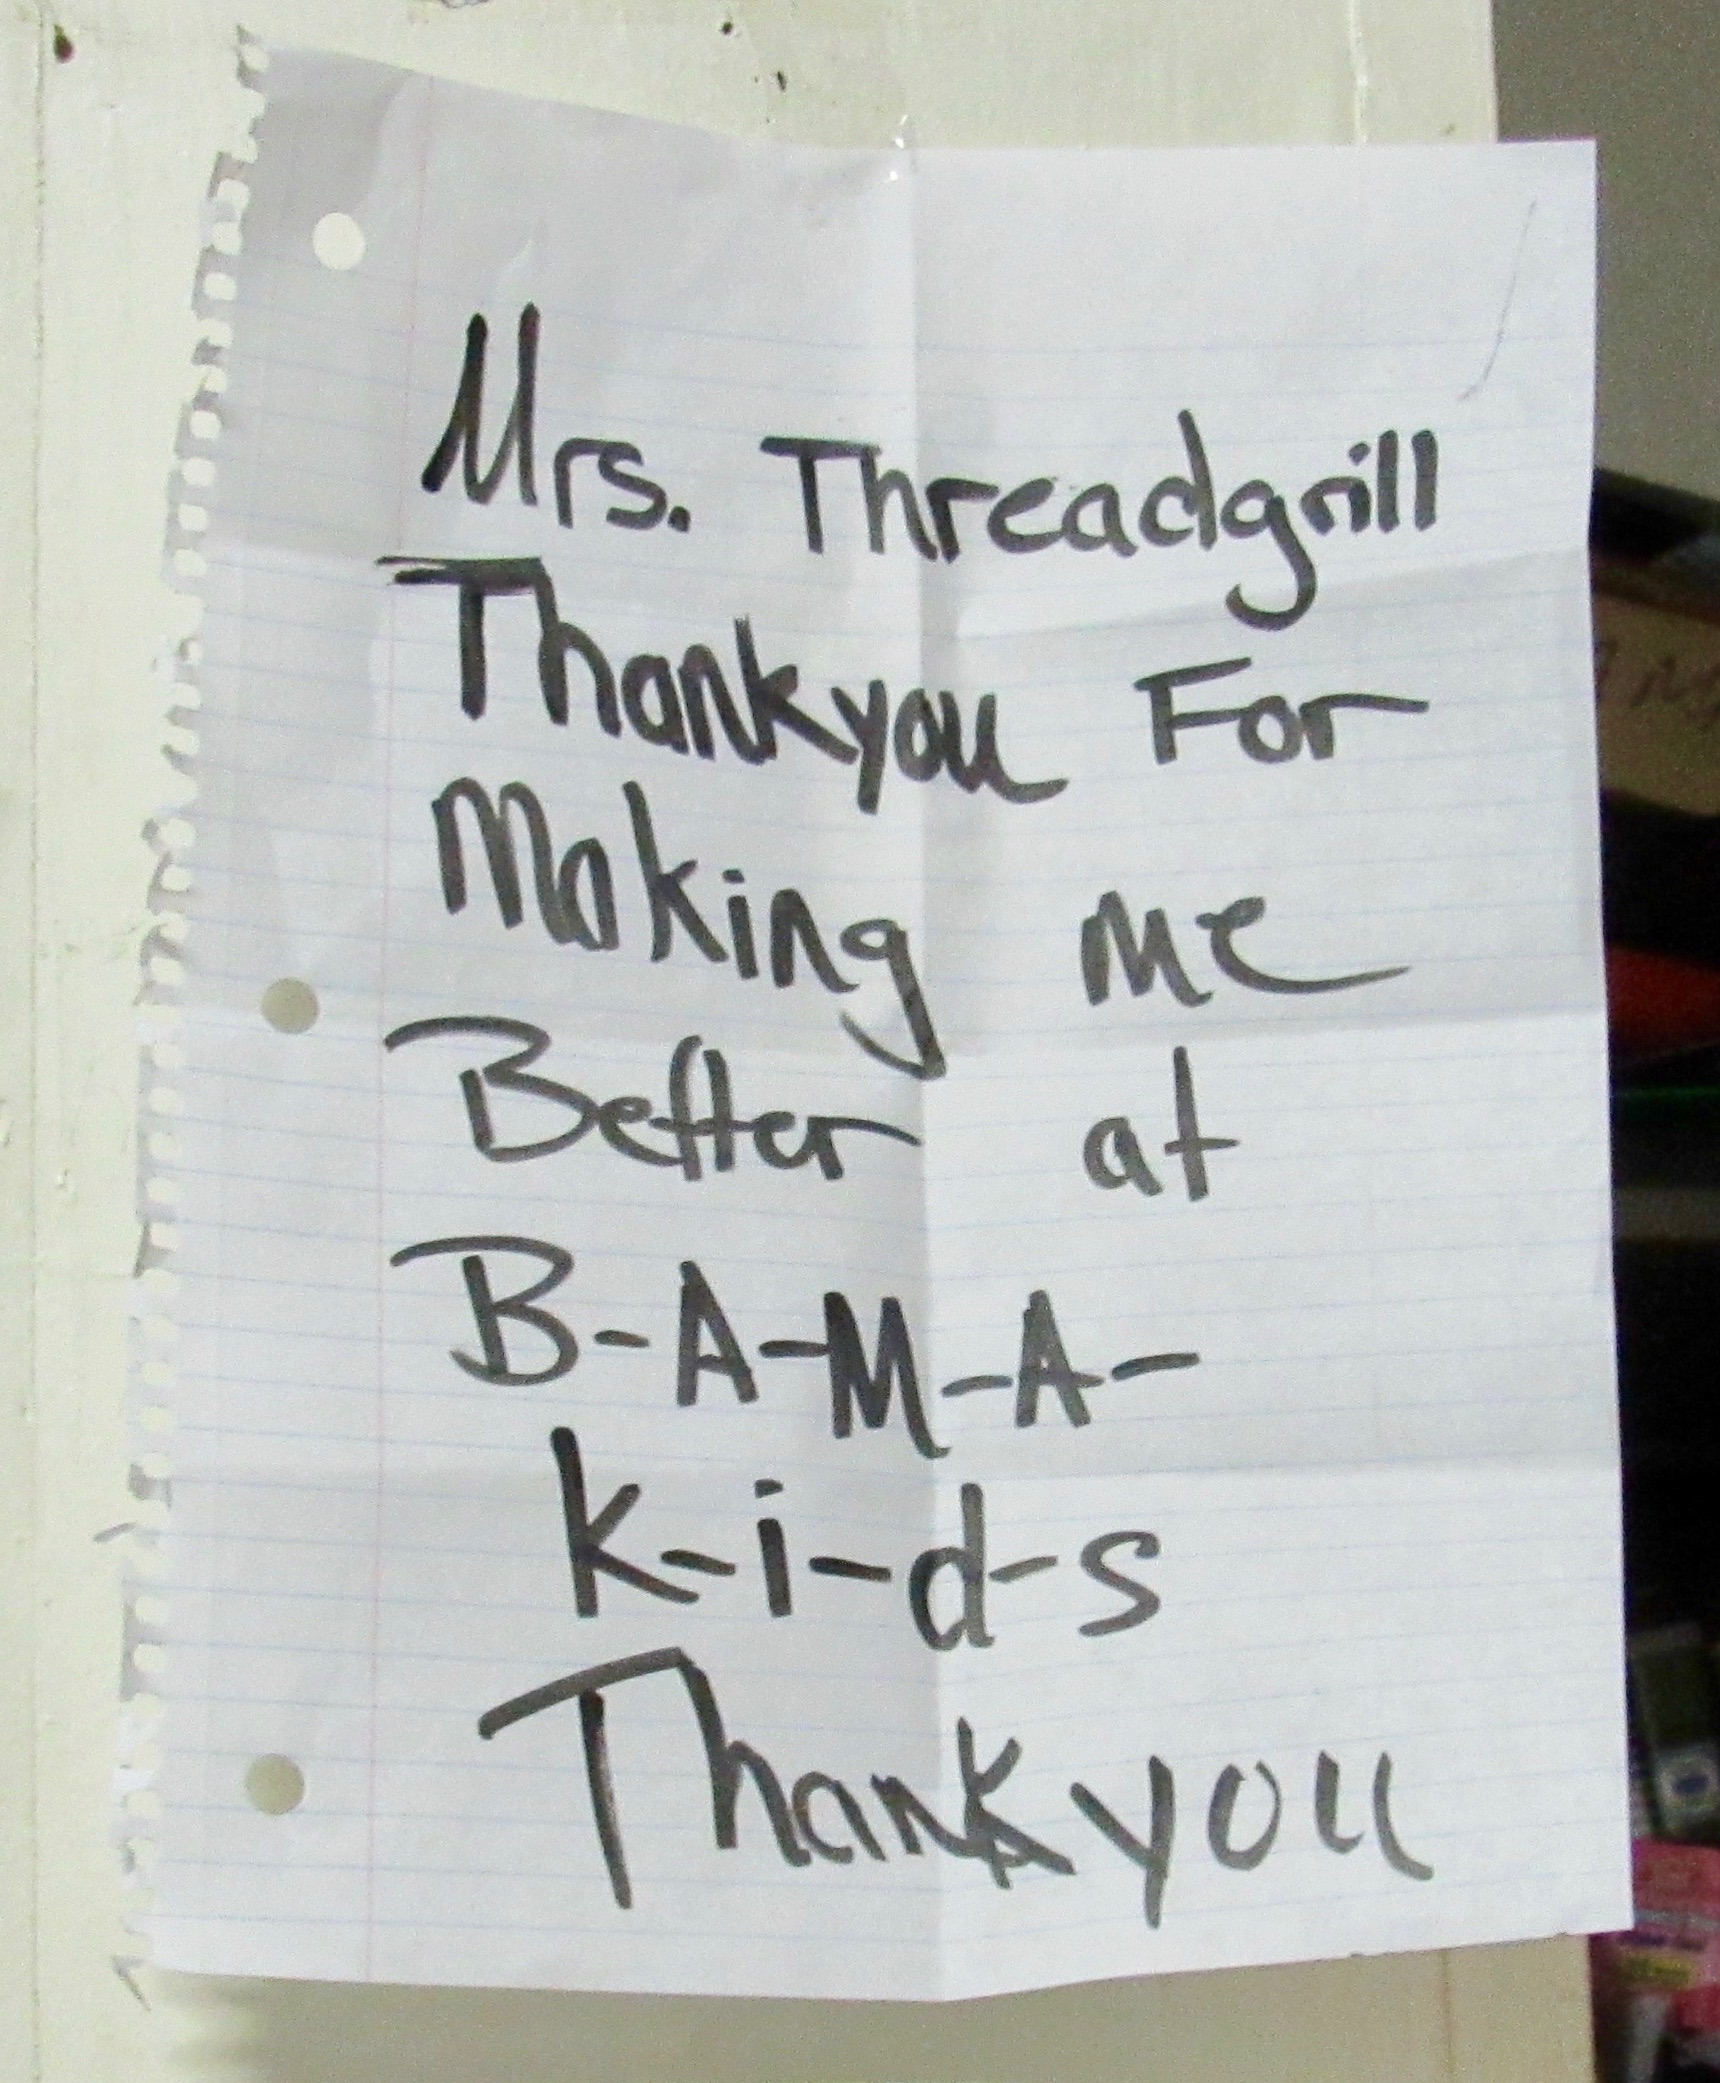 Mrs. Threadgrill
Thankyou For
Making me
Better at
B-A-M-A-
K-i-d-s
Thank you